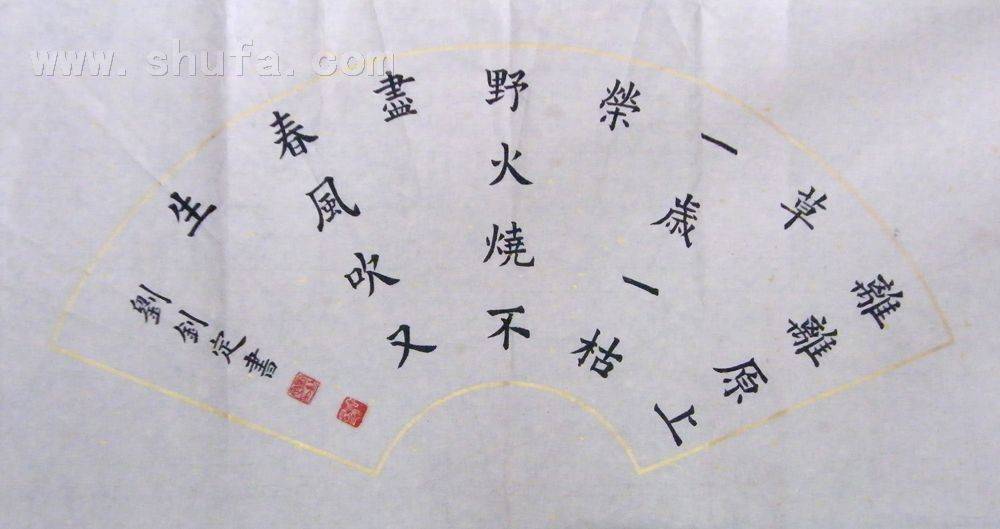 www.shufa.com
離離原上
草
一歲一枯
榮
野火燒不
盡
春風吹又
生
劉釗定書